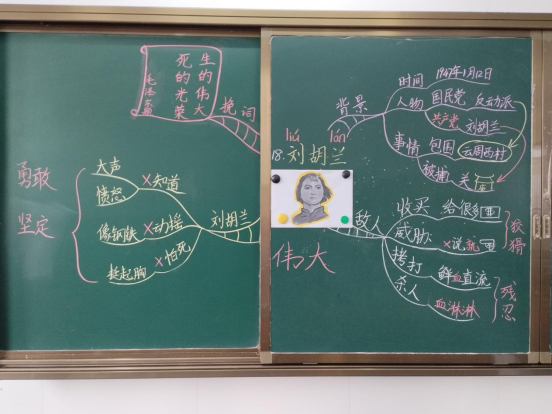 生的伟大
死的光荣
毛泽东
挽词
勇敢
坚定
大声
愤怒
×知道
像钢铁
×动摇
挺起胸
×怕死
刘胡兰
liú
lán
18.刘胡兰
伟大
背景
时间
1947年1月12日
人物
国民党 反动派
共产党 刘胡兰
事情
包围 云周西村
被捕 关
敌人
收买 给很多田
威胁
×说就
拷打 鲜血直流
杀人 血淋淋
狡猾
残忍